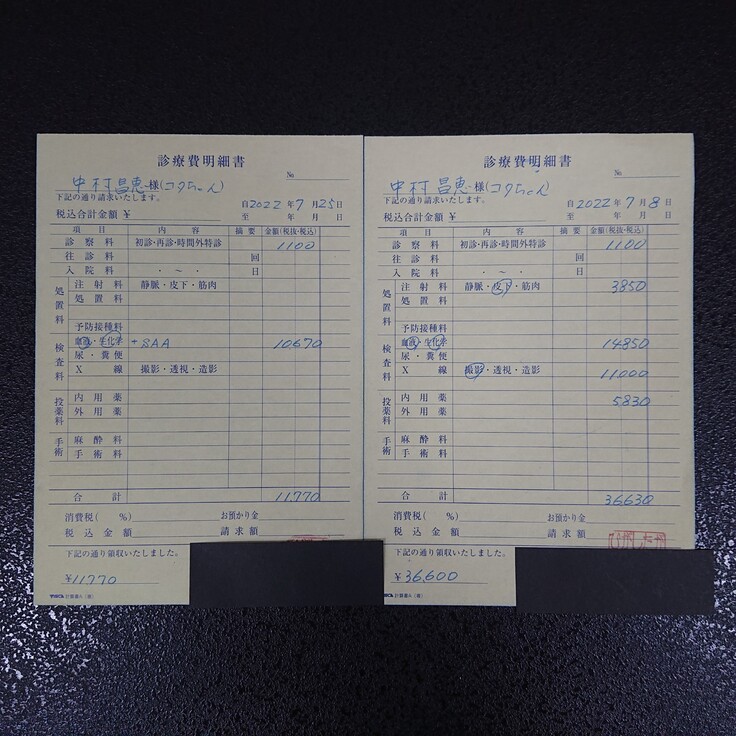 診療費明細書
№
中村昌恵 様(コクちゃん)
下記の通り請求いたします。
税込合計金額 ¥
自2022年7月25日
至 年 月 日
項目 内容 摘要 金額(税抜・税込)
診察料 初診・再診・時間外特診 1100
往診料 回
入院料 ・ ~ ・ 日
処置料
注射料 静脈・皮下・筋肉
処置料
予防接種料
検査料
血液・生化学 +SAA 10670
尿・糞便
X線 撮影・透視・造影
投薬料
内用薬
外用薬
手術
麻酔料
手術料
合計 11,770
消費税( %) お預かり金
税込金額 請求額
下記の通り領収いたしました。
¥11,770
計簿業A(産)
診療費明細書
№
中村昌恵 様(コクちゃん)
下記の通り請求いたします。
税込合計金額 ¥
自2022年7月8日
至 年 月 日
項目 内容 摘要 金額(税抜・税込)
診察料 初診・再診・時間外特診 1100
往診料 回
入院料 ・ ~ ・ 日
処置料
注射料 静脈・皮下・筋肉 3850
処置料
予防接種料
検査料
血液・生化学 14850
尿・糞便
X線 撮影・透視・造影 11000
投薬料
内用薬 5830
外用薬
手術
麻酔料
手術料
合計 36630
消費税( %) お預かり金
税込金額 請求額
下記の通り領収いたしました。
¥36,600